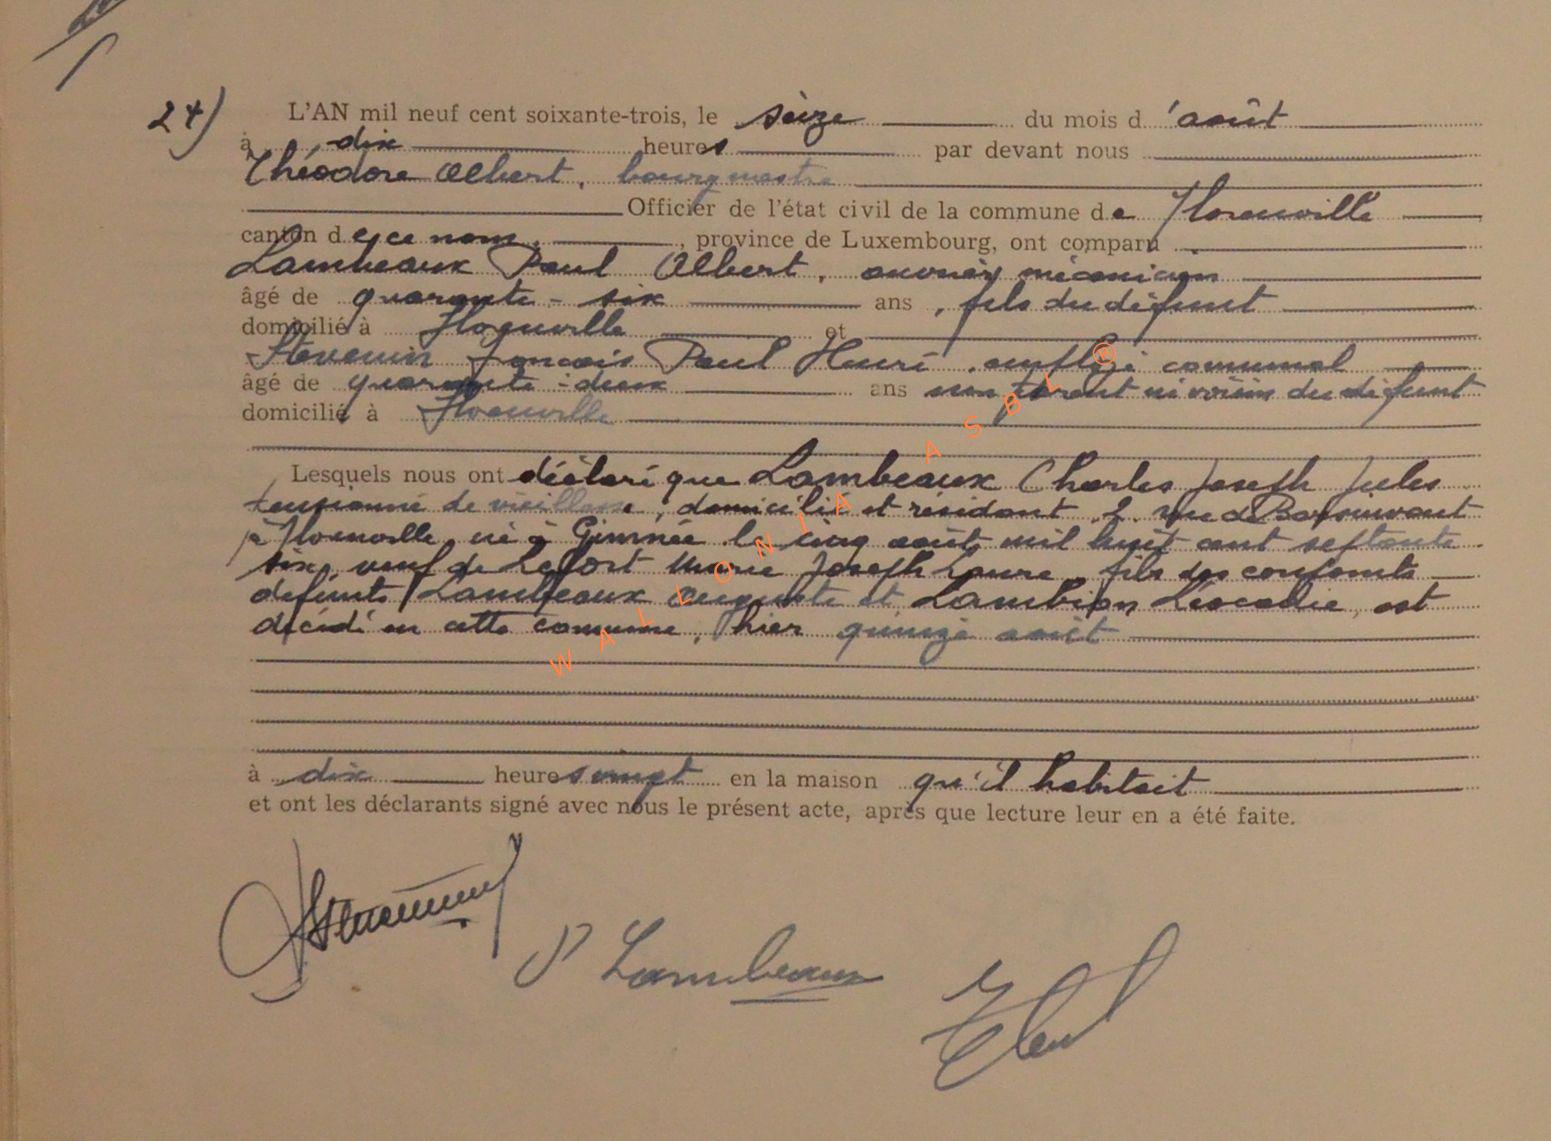 24)
L'AN mil neuf cent soixante-trois, le seize du mois d'août
à dix heures par devant nous
Théodore Albert, bourgmestre
Officier de l'état civil de la commune de Florenville
canton de ce nom, province de Luxembourg, ont comparu
Lambeaux Paul Albert, ouvrier mécanicien
âgé de quarante-six ans, fils du défunt
domicilié à Florenville et
Stevenin François Paul Henri, employé communal
âgé de quarante-deux ans non parent ni voisin du défunt
domicilié à Florenville
Lesquels nous ont déclaré que Lambeaux Charles Joseph Jules
pensionné de vieillesse, domicilié et résidant 2, rue de
à Florenville, né à Gimnée le cinq août mil huit cent septante
six, veuf de Lefort Marie Joseph Laure, fils des conjoints
défunts Lambeaux Auguste et Lambion Léocadie, est
décédé en cette commune, hier quinze août
à dix heures vingt en la maison qu'il habitait
et ont les déclarants signé avec nous le présent acte, après que lecture leur en a été faite.
P Lambeaux
WALLONIA ASBL ®